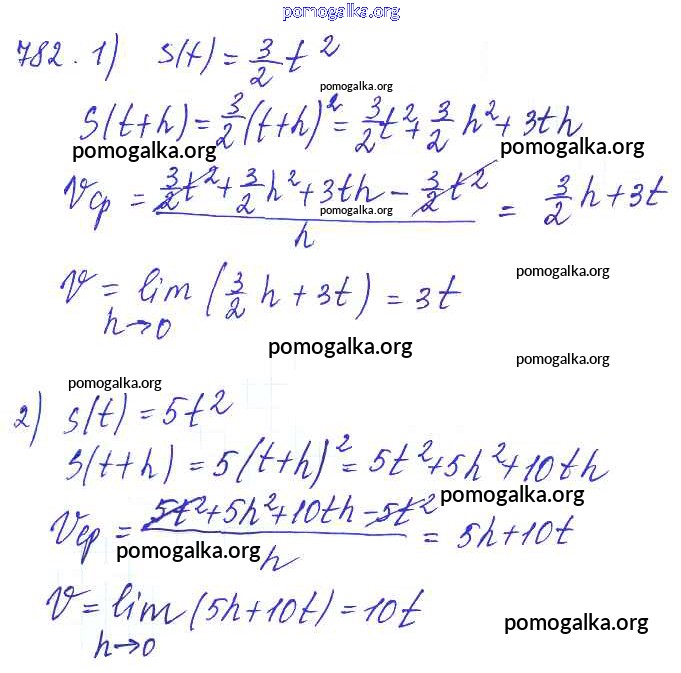 pomogalka.org
782. 1) S(t) = 3/2 t²
pomogalka.org
S(t+h) = 3/2 (t+h)² = 3/2 t² + 3/2 h² + 3th
pomogalka.org pomogalka.org
Vср = (3/2 t² + 3/2 h² + 3th − 3/2 t²)/h = 3/2 h + 3t
pomogalka.org
pomogalka.org
V = lim h→0 (3/2 h + 3t) = 3t
pomogalka.org pomogalka.org
pomogalka.org
2) S(t) = 5t²
S(t+h) = 5(t+h)² = 5t² + 5h² + 10th
pomogalka.org
Vср = (5t² + 5h² + 10th − 5t²)/h = 5h + 10t
pomogalka.org
V = lim h→0 (5h + 10t) = 10t
pomogalka.org